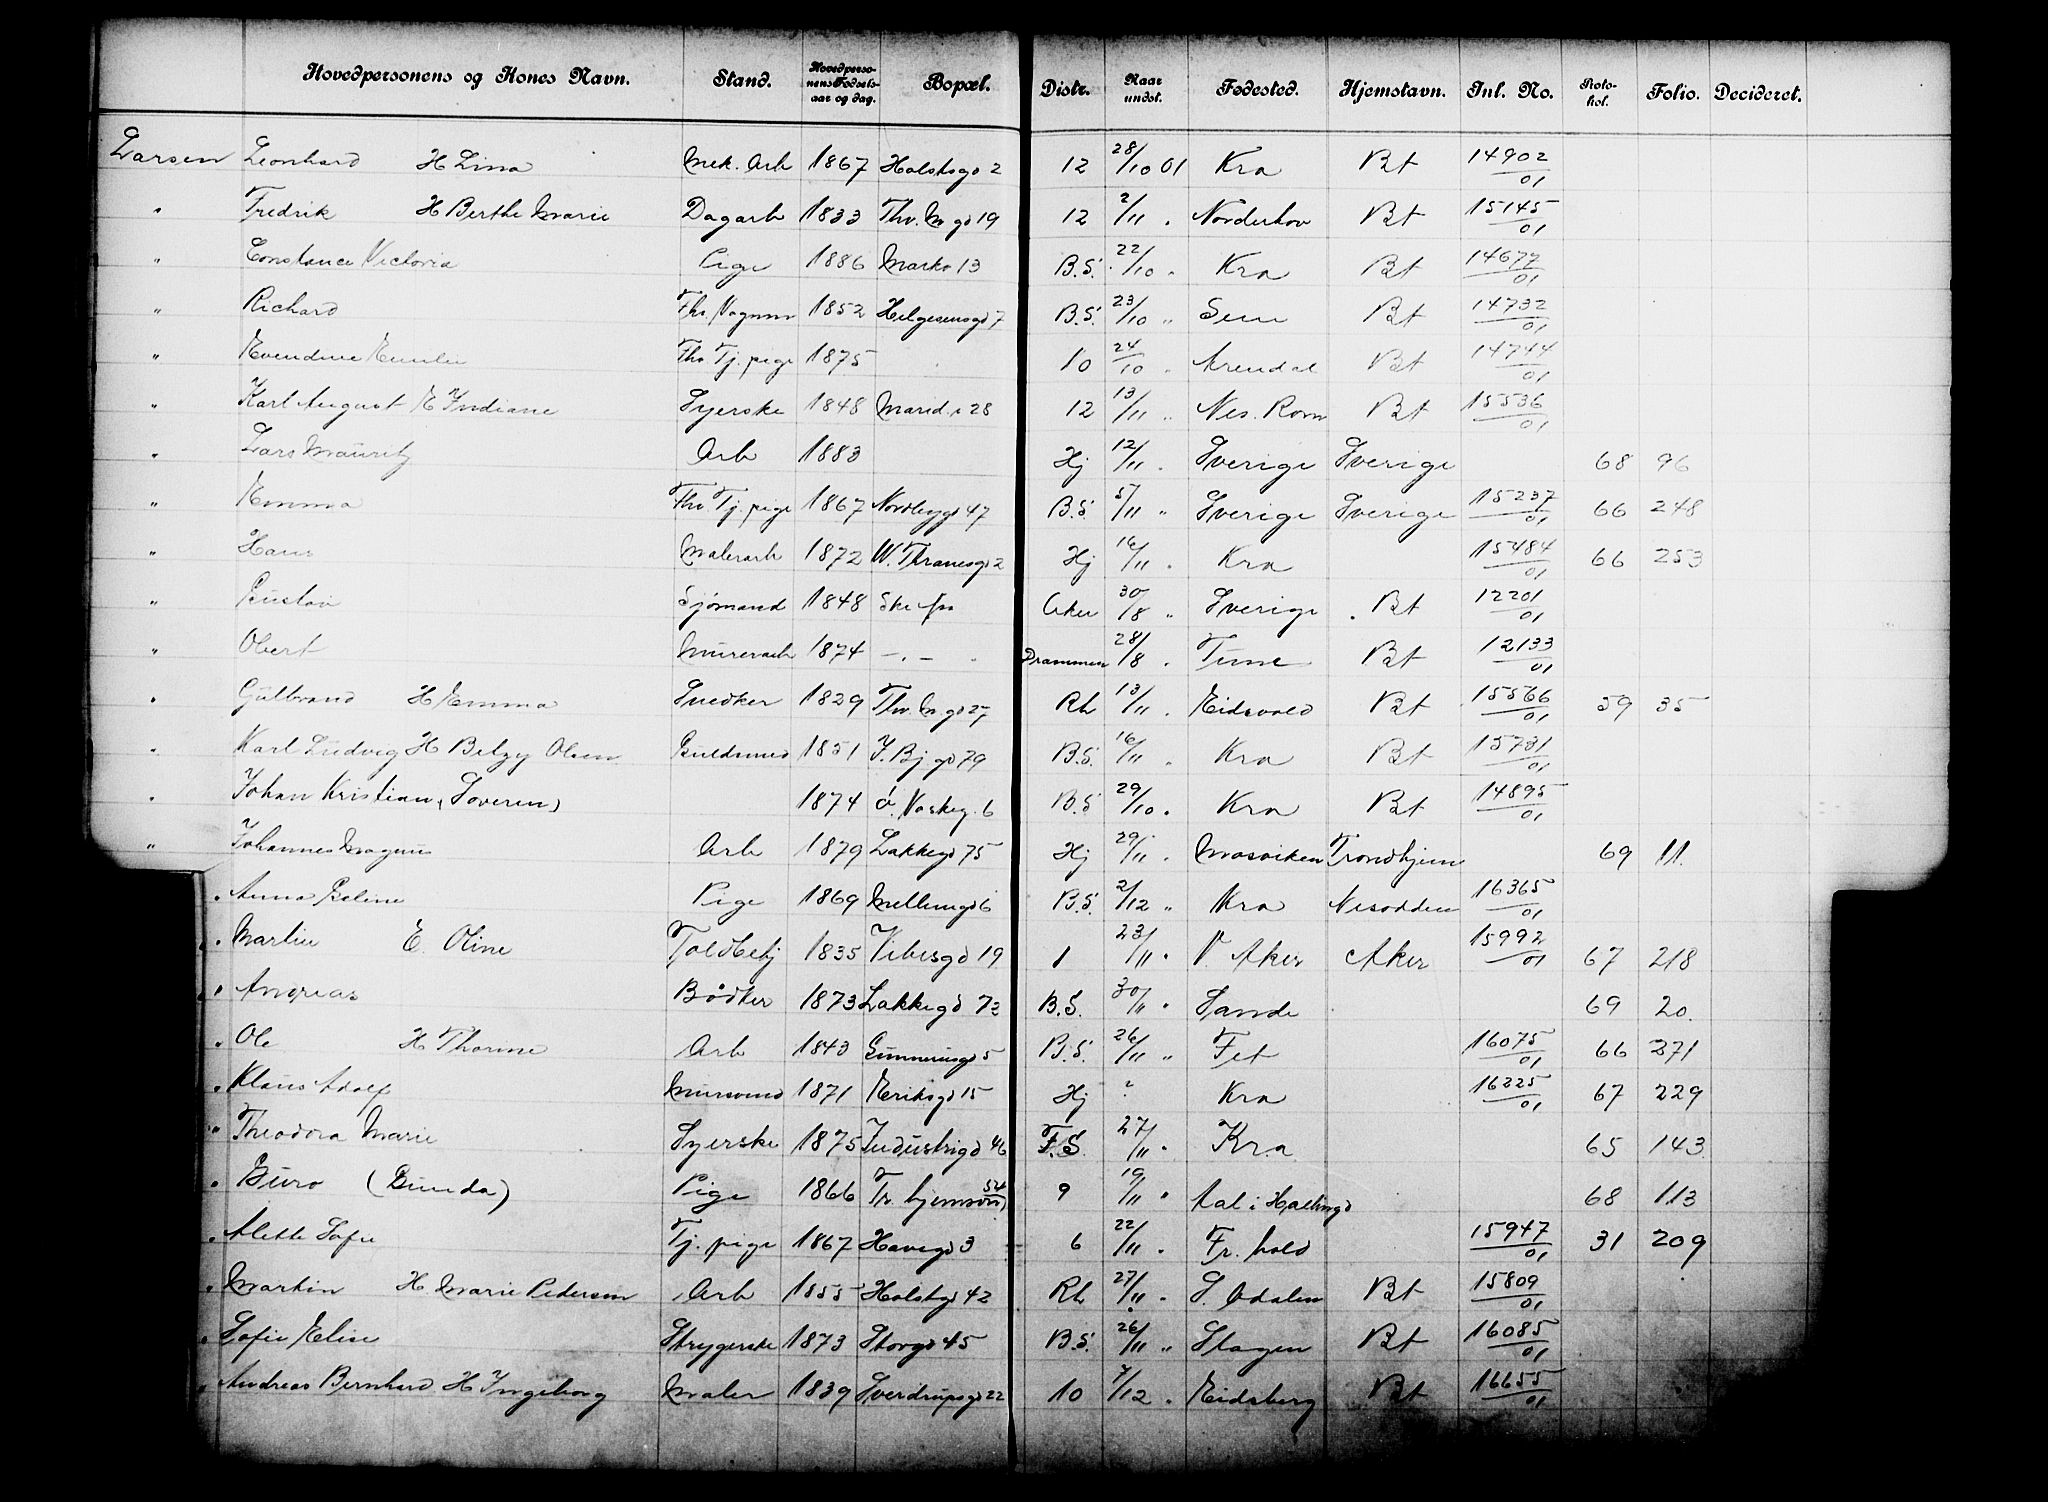 Hovedpersonens og Kones Navn. Stand. Hovedpersonens Fødselsaar og dag. Bopæl. Distr. Naar undst. Fødested. Hjemstavn. Jnl. No. Protokol. Folio. Decideret.
Larsen Leonhard H Lina Mek. Arb 1867 Holstsgd 2 12 28/10 01 Kra Bt 14902/01
" Fredrik H Berthe Marie Dagarb 1833 Thv. M gd 19 12 2/11 " Norderhov Bt 15145/01
" Constance Victoria Pige 1886 Markv 13 B.S. 22/10 " Kra Bt 14677/01
" Richard Fhv. Vognm 1852 Helgesensgd 7 B.S. 23/10 " Sem Bt 14732/01
" Evendine Emilie Fhv Tj. pige 1875 10 24/10 " Arendal Bt 14744/01
" Karl August E Indiane Syerske 1848 Marid. v 28 12 13/11 " Nes. Rom Bt 15536/01
" Lars Mauritz Arb 1883 Hj 12/11 " Sverige Sverige 68 96
" Emma Fhv Tj. pige 1867 Nordbygd 47 B.S. 5/11 " Sverige Sverige 15237/01 66 248
" Hans Malerarb 1872 M. Thranesgd 2 Hj 16/11 " Kra 15484/01 66 253
" Gustav Sjømand 1848 Aker 30/8 " Sverige Bt 12201/01
" Olert Murerarb 1874 — " — Drammen 28/8 " Tune Bt 12133/01
" Gulbrand H Emma Snedker 1829 Thv. M. gd 27 Rh 13/11 " Eidsvold Bt 15566/01 59 35
" Karl Ludvig H Betzy Olsen Guldsmed 1851 J. Bj gd 79 B.S. 16/11 " Kra Bt 15731/01
" Johan Kristian (Soveren) 1874 ø. Vaskeg. 6 B.S 29/10 " Kra Bt 14895/01
" Johannes Magnus Arb 1879 Lakkegd 75 Hj 29/11 " Mosviken Trondhjem 69 11.
" Anna Galine Pige 1869 Mellumgd 6 B.S. 2/12 " Kra Nesodden 16365/01
" Martin E. Oline Toldbetj 1835 Vibesgd 19 1 23/11 " V. Aker Aker 15992/01 67 218
" Andreas Bødker 1873 Lakkegd 73 B.S. 30/11 " Sande 69 20.
" Ole H Thorine Arb 1843 Gunnerusgd 5 B.S. 26/11 " Fet 16075/01 66 271
" Klaus Adolf Mursvend 1871 Eriksgd 15 Hj ? Kra 16225/01 67 229
" Theodora Marie Syerske 1875 Industrigd 46 F.S. 27/11 " Kra 65 143
" Guro (Gunda) Pige 1866 Tr. hjemsvn 54 9 19/11 " Aal i Hallingd 68 113
" Alette Sofie Tj. pige 1867 Havegd 3 6 22/11 " Fr. hald 15947/01 31 209
" Martin H Marie Pedersen Arb 1855 Holstgd 42 Rh 27/11 " S. Odalen Bt 15809/01
" Sofie Elise Strygerske 1873 Storgd 45 B.S. 26/11 " Slagen Bt 16085/01
" Andreas Bernhard H Ingeborg Maler 1839 Sverdrupsgd 22 10 7/12 " Eidsberg Bt 16655/01